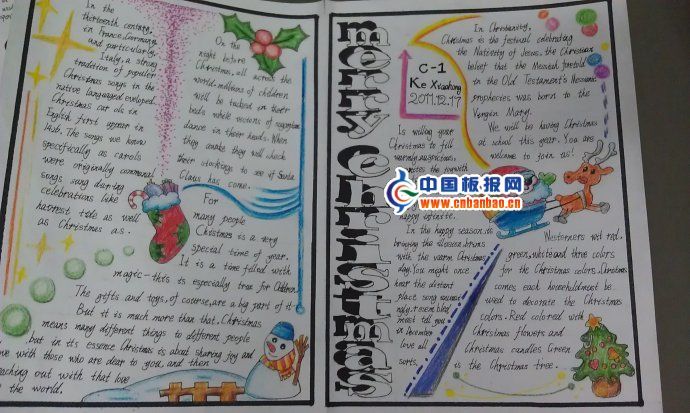 In the
thirteenth century,
in France, Germany,
and particularly,
Italy, a strong
tradition of popular
Christmas songs in the
native language developed.
Christmas car ols in
English first appear in
The songs we know
specifically as carols
were originally communal
songs sung during
celebrations like
harvest tide as well
as Christmas a.s.
On the
night before
Christmas, all across the
world, millions of children
will be tucked in their
beds while visions of
dance in their heads. When
they awake they will check
their stockings to see if Santa
Claus has come.
For
many people
Christmas is a very
special time of year.
It is a time filled with
magic—this is especially true for Children.
The gifts and toys, of course, are a big part of it.
But it is much more than that. Christmas
means many different things to different people
but in it's essence Christmas is about sharing joy and
with those who are dear to you, and then
reaching out with that love
the world.
merry christmas
C-1
Ke Xiaohong
2011.12.17
In Christianity,
Christmas is the festival celebrating
the Nativity of Jesus, the Christian
belief that the Messiah foretold
in the Old Testament's Messianic
prophecies was born to the
Virgin Mary.
We will be having Christmas
at school this year. You are
welcome to join us!
Is willing your
Christmas to fill
warmly, auspicious,
happy infinite.
In the happy season, is
bringing the
with the warm Christmas
day. You might once
hear the distant
place song
in December
love all
sorts.
中国板报网
www.cnbanbao.cn
Westerners wit red,
green, white and three colors
for the Christmas colors, Christmas
comes each household must be
used to decorate the Christmas
colors. Red colored with
Christmas flowers and
Christmas candles Green
is the Christmas tree.